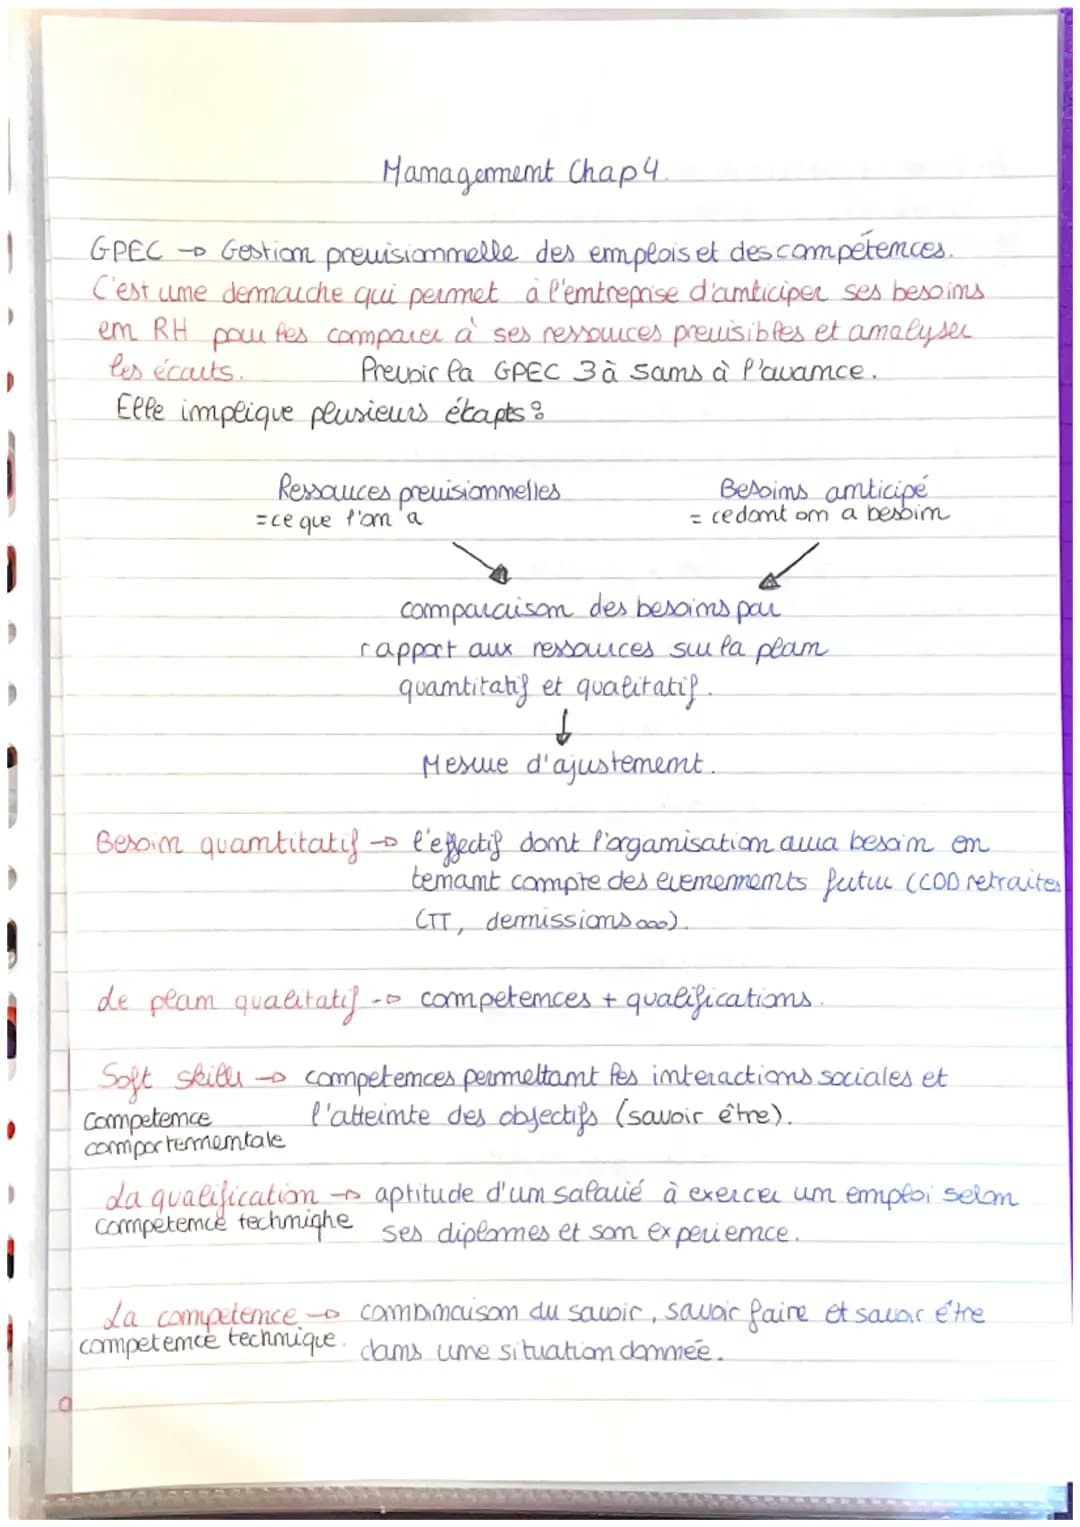 Management Chap 4.
GPEC → Gestion previsionnelle des emplois et des compétences.
C'est une demarche qui permet à l'entreprise d'anticiper ses besoins
en RH pour les comparer à ses ressources previsibles et analyser
les écarts. Prevoir la GPEC 3 à 5 ans à l'avance.
Elle implique plusieurs étapts :
Ressources previsionnelles
= ce que l'on a
Besoins anticipé
= ce dont on a besoin
comparaison des besoins par
rapport aux ressources sur la plan
quantitatif et qualitatif.
↓
Mesure d'ajustement.
Besoin quantitatif → l'effectif dont l'organisation aura besoin en
tenant compte des evenements futur (CDD retraites
CTT, demissions...).
Le plan qualitatif → competences + qualifications.
Soft skills → competences permettant les interactions sociales et
l'atteinte des objectifs (savoir être).
Competence
comportementale
La qualification → aptitude d'un salarié à exercer un emploi selon
competence technique
ses diplomes et son experience.
La competence → combinaison du savoir, savoir faire et savoir être
competence technique.
dans une situation donnée.